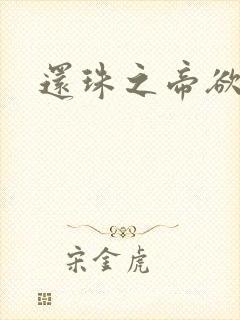 還珠之帝欲
宋金虎